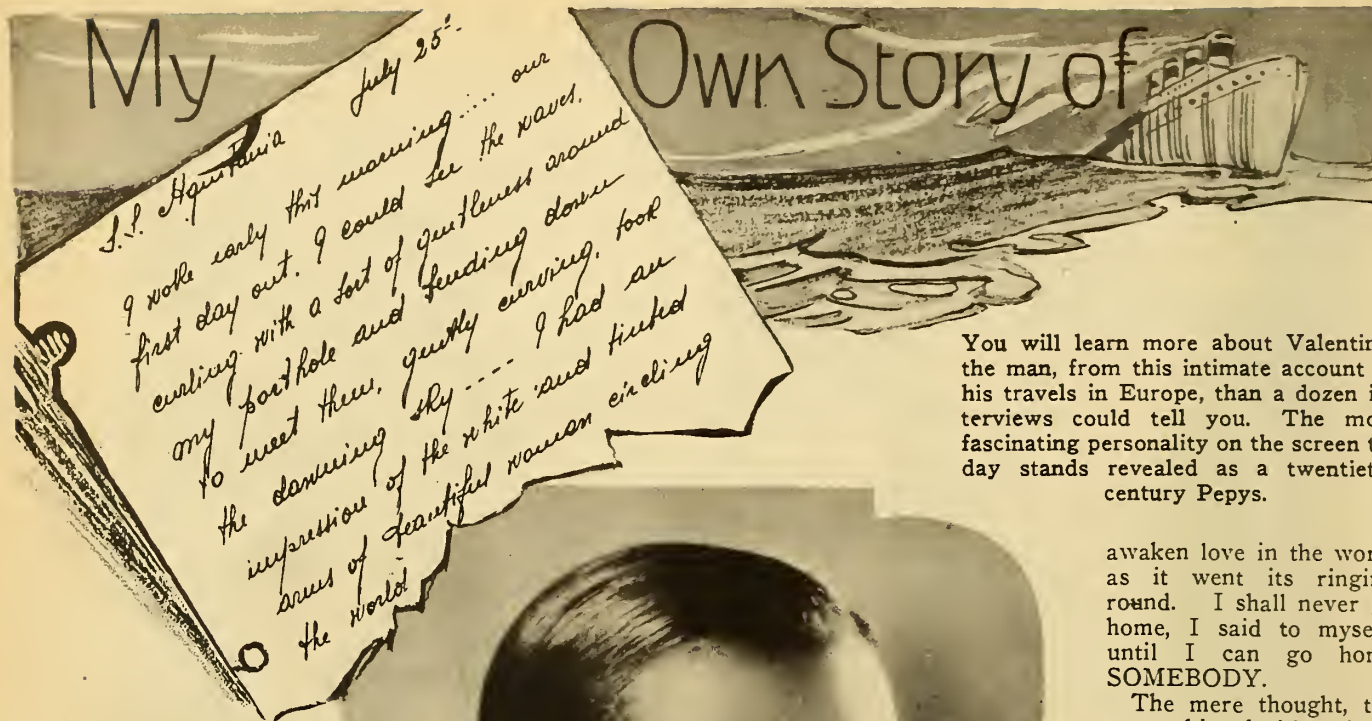 My Own Story of
S.S. Aquitania July 25-
I woke early this morning.... our
first day out. I could see the waves,
curling with a sort of gentleness around
my porthole and bending down
to meet them, gently curving, too
the dawning sky---- I had an
impression of the white and tinted
arms of beautiful woman circling
the world
You will learn more about Valentin
the man, from this intimate account
his travels in Europe, than a dozen i
terviews could tell you. The mo
fascinating personality on the screen t
day stands revealed as a twentiet
century Pepys.
awaken love in the wor
as it went its ringi
round. I shall never
home, I said to myse
until I can go hom
SOMEBODY.
The mere thought, t